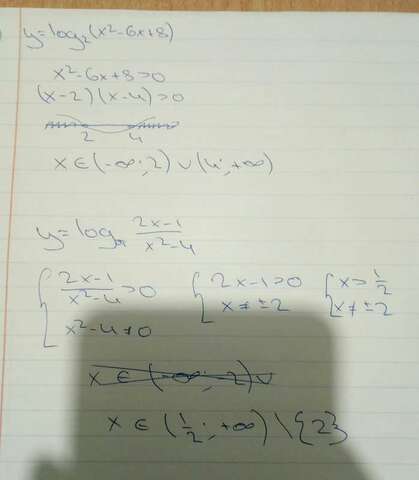 y=log₂(x²-6x+8)
x²-6x+8>0
(x-2)(x-4)>0
2 4
x∈(-∞;2)∪(4;+∞)
y=log (2x-1)/(x²-4)
{ (2x-1)/(x²-4)>0 { 2x-1>0 { x>1/2
x²-4≠0 x≠±2 x≠±2
x∈(-∞;-2)∪
x∈(1/2;+∞)\{2}